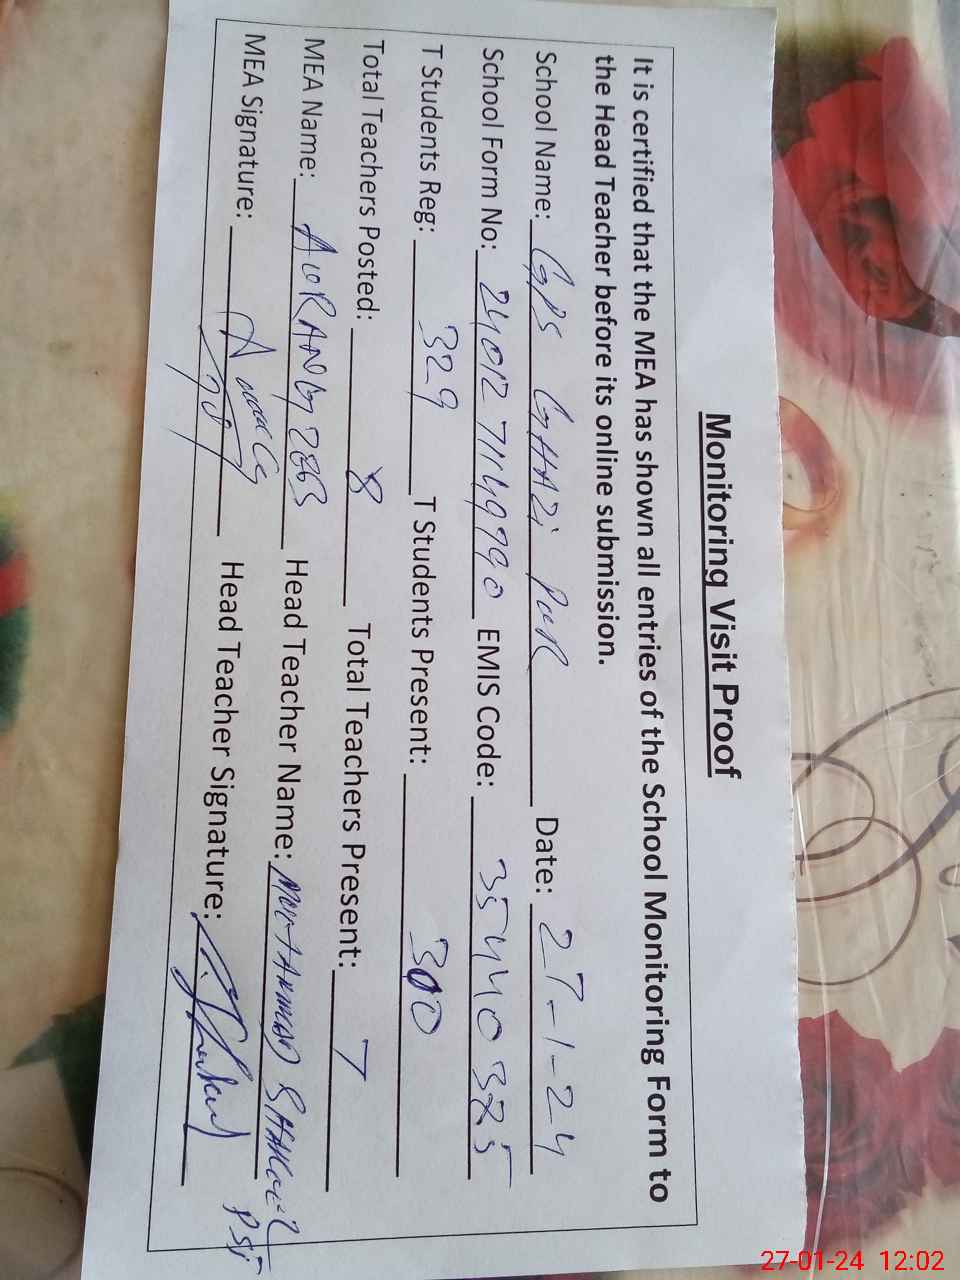 Monitoring Visit Proof
It is certified that the MEA has shown all entries of the School Monitoring Form to
the Head Teacher before its online submission.
School Name: GPS GHAZi PUR Date: 27-1-24
School Form No: EMIS Code: 35440325
T Students Reg: 329 T Students Present: 300
Total Teachers Posted: 8 Total Teachers Present: 7
MEA Name: Head Teacher Name: PST
MEA Signature: Head Teacher Signature:
27-01-24 12:02